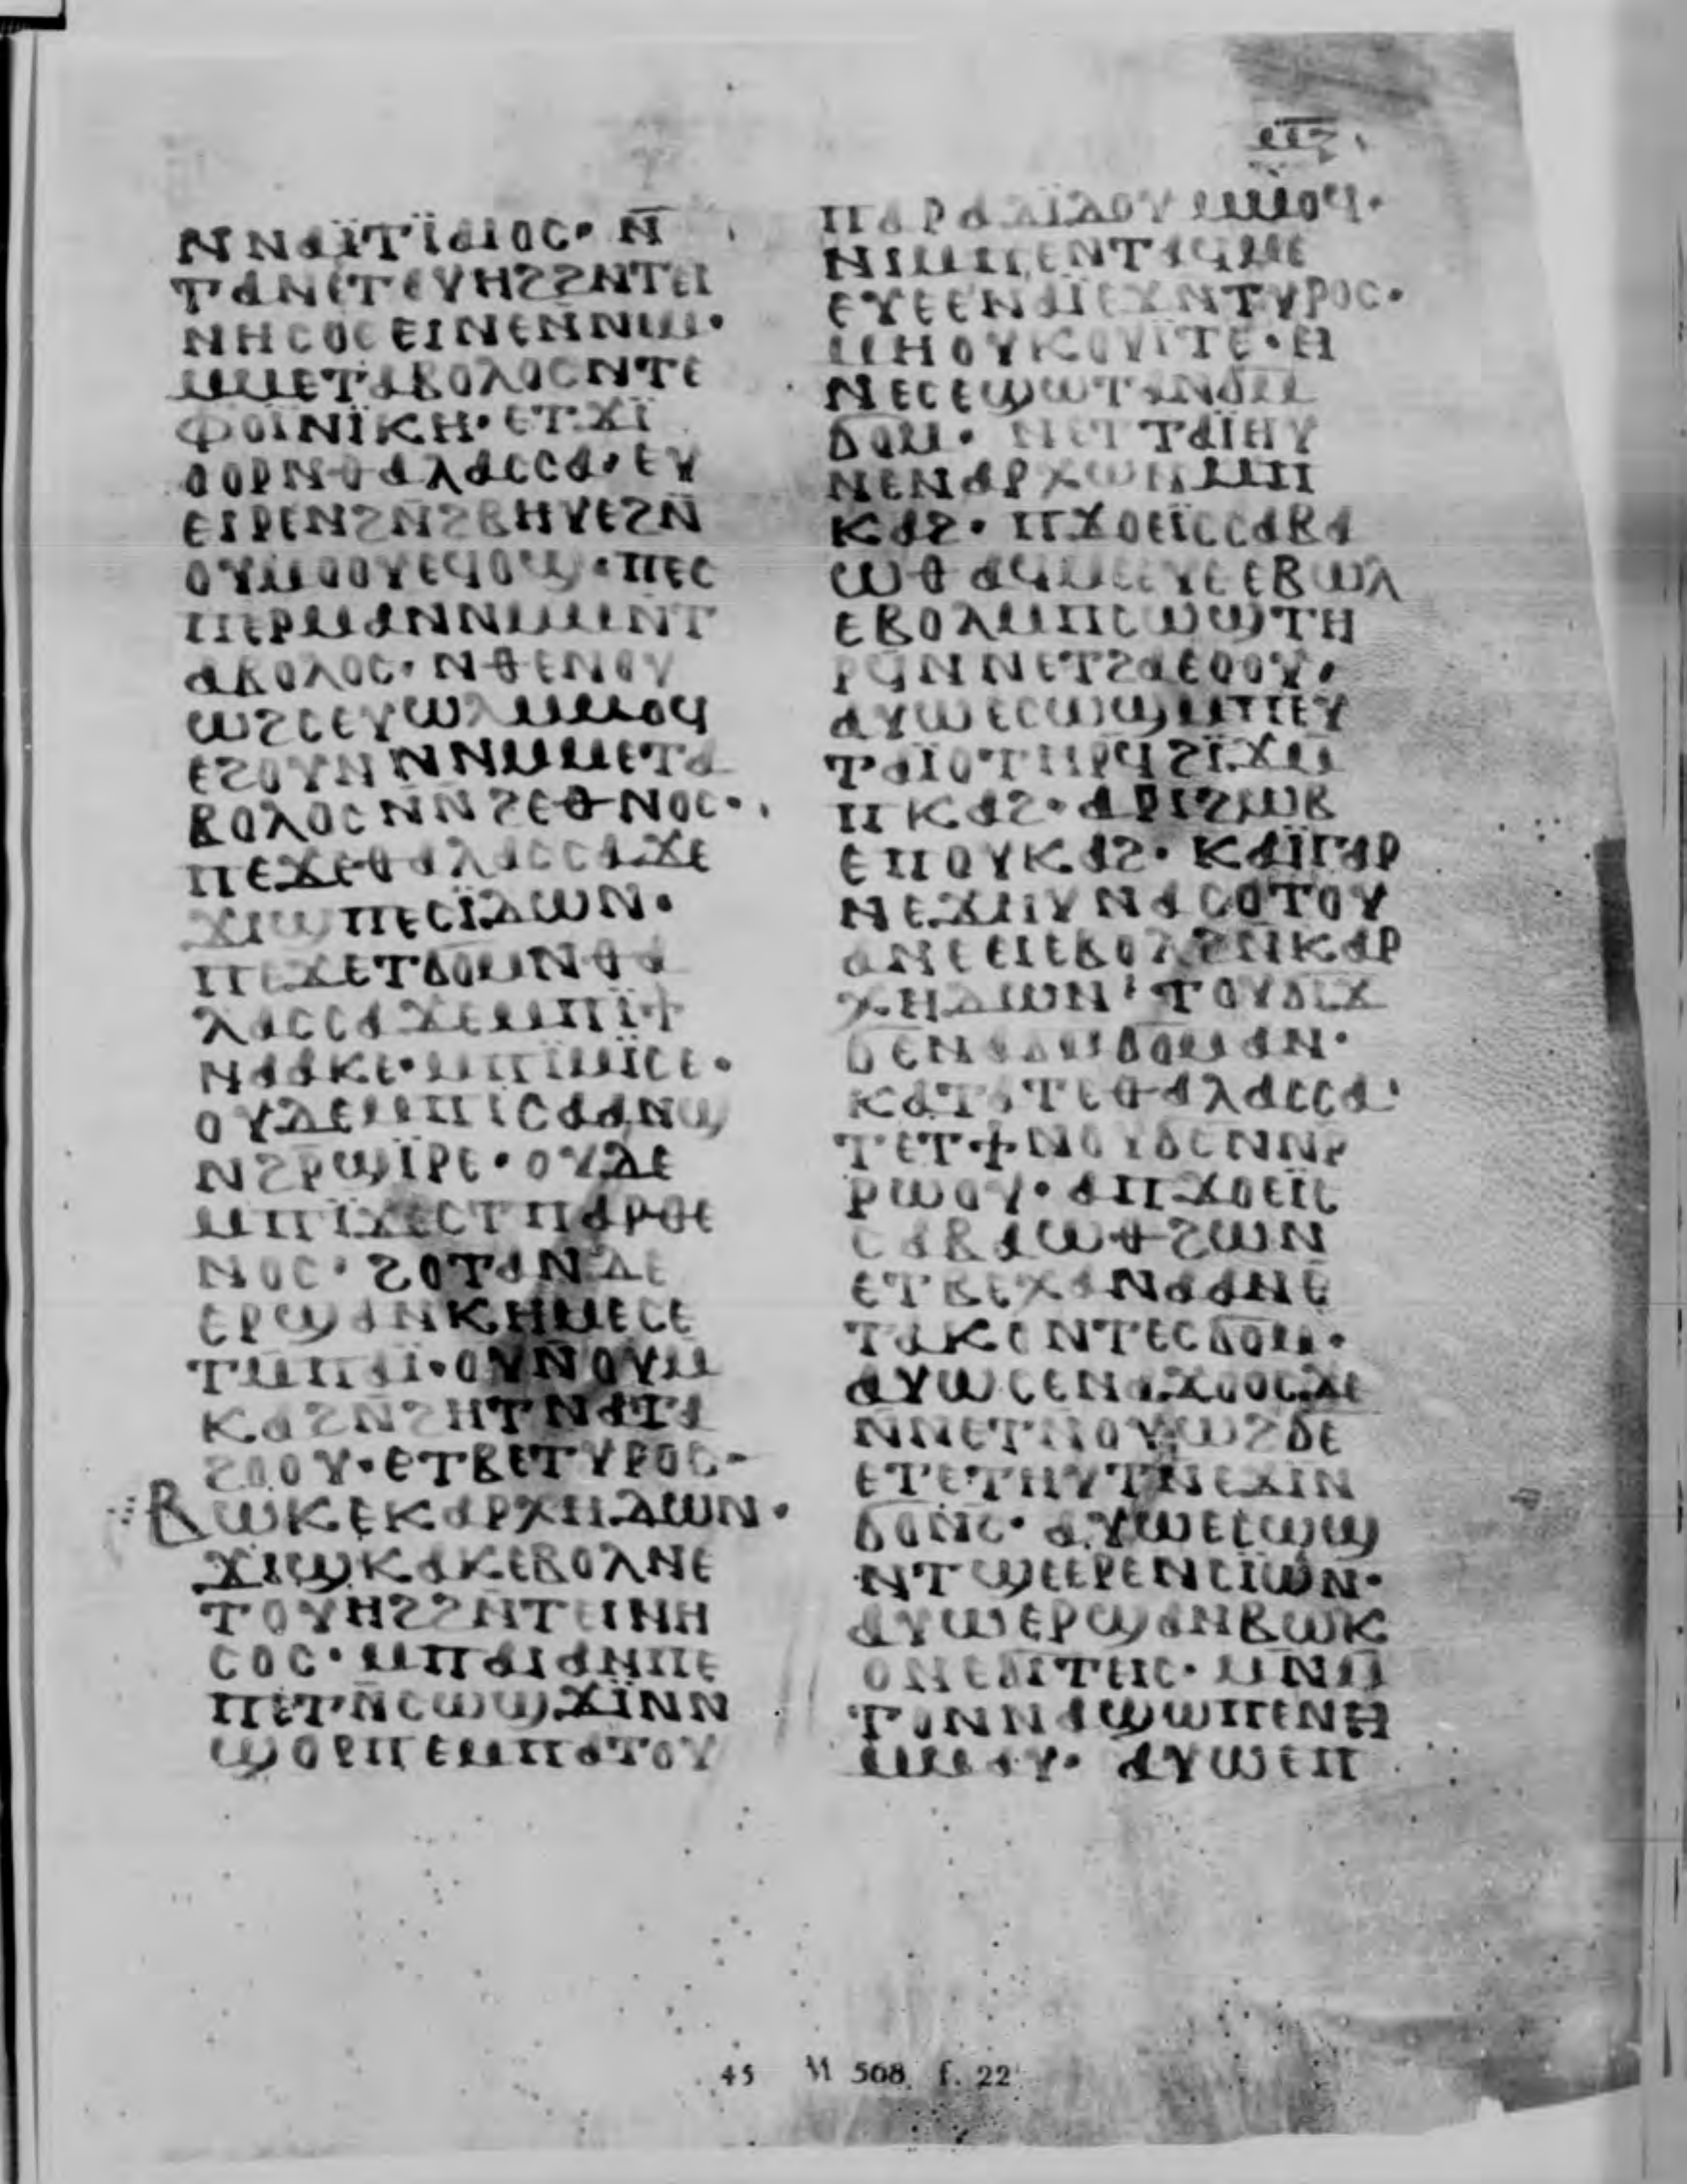 ⲙⲋ
ⲛⲛⲁⲓ̈ⲧⲓ̈ⲁⲓⲟⲥ· ⲛ̄
ⲧⲁⲛⲉⲧⲟⲩⲏϩϩⲛⲧⲉⲓ
ⲛⲏⲥⲟⲥⲉⲓⲛⲉⲛⲛⲓⲙ·
ⲙⲙⲉⲧⲁⲃⲟⲗⲟⲥⲛⲧⲉ
ⲫⲟⲓⲛⲓ̈ⲕⲏ· ⲉⲧϫⲓ̈
ⲟⲟⲣⲛⲑⲁⲗⲁⲥⲥⲁ· ⲉⲩ
ⲉⲓⲣⲉⲛϩⲛϩⲃⲏⲩⲉϩⲛ̄
ⲟⲩⲙⲟⲟⲩⲉϥⲟϣ· ⲡⲉⲥ
ⲡⲉⲣⲙⲁⲛⲛⲓⲙⲙⲛⲧ
ⲁⲃⲟⲗⲟⲥ· ⲛⲑⲉⲛⲟⲩ
ⲱϩⲥⲉⲩⲱⲗⲙⲙⲟϥ
ⲉϩⲟⲩⲛⲛⲛⲓⲙⲙⲉⲧⲁ
ⲃⲟⲗⲟⲥⲛⲛϩⲉⲑⲛⲟⲥ·
ⲡⲉϫⲉⲑⲁⲗⲁⲥⲥⲁϫⲉ
ϫⲓϣⲡⲉⲥⲓ̈ⲇⲱⲛ·
ⲡⲉϫⲉⲧϭⲟⲙⲛⲑⲁ
ⲗⲁⲥⲥⲁϫⲉⲙⲡⲓ̈ϯ
ⲛⲁⲁⲕⲉ· ⲙⲡⲓⲙⲓ̈ⲥⲉ·
ⲟⲩⲇⲉⲙⲡⲓⲥⲁⲁⲛϣ
ⲛϩⲣϣⲓ̈ⲣⲉ· ⲟⲩⲇⲉ
ⲙⲡⲓ̈ϫⲉⲥⲧⲡⲁⲣⲑⲉ
ⲛⲟⲥ· ϩⲟⲧⲁⲛⲇⲉ
ⲉⲣϣⲁⲛⲕⲏⲙⲉⲥⲉ
ⲧⲙⲡⲁⲓ· ⲟⲩⲛ̄ⲟⲩⲙ
ⲕⲁϩⲛϩⲏⲧⲛⲁⲧⲁ
ϩⲟⲟⲩ· ⲉⲧⲃⲉⲧⲩⲣⲟⲥ-
ⲃⲱⲕⲉⲕⲁⲣⲭⲏⲇⲱⲛ·
ϫⲓϣⲕⲁⲕⲉⲃⲟⲗⲛⲉ
ⲧⲟⲩⲏϩϩⲛⲧⲉⲓⲛⲏ
ⲥⲟⲥ· ⲙⲡⲁⲓⲁⲛⲡⲉ
ⲡⲉⲧⲛⲥⲱϣϫⲓ̈ⲛⲛ
ϣⲟⲣⲡⲉⲙⲡⲁⲧⲟⲩ
ⲡⲁⲣⲁⲇⲓⲇⲟⲩⲙⲙⲟϥ·
ⲛⲓⲙⲡⲉⲛⲧⲁϥⲙⲉ
ⲉⲩⲉⲉⲛⲁⲓⲉϫⲛⲧⲩⲣⲟⲥ·
ⲙⲏⲟⲩⲕⲟⲩⲓⲧⲉ· ⲏ
ⲛⲉⲥⲉϣⲱⲧⲁⲛϭⲙ
ϭⲟⲙ· ⲛⲉⲧⲧⲁⲓ̈ⲏⲩ
ⲛⲉⲛⲁⲣⲭⲱⲛⲙⲡ
ⲕⲁϩ· ⲡϫⲟⲉⲓⲥⲥⲁⲃⲁ
ⲱⲑⲁϥⲙⲉⲉⲩⲉⲉⲃⲱⲗ
ⲉⲃⲟⲗⲙⲡⲥⲱϣⲧⲏ
ⲣϥⲛⲛⲉⲧϩⲁⲉⲟⲟⲩ·
ⲁⲩⲱⲉⲥⲱϣⲙⲡⲉⲧ
ⲧⲁⲓⲟⲧⲏⲣϥϩⲓ̈ϫⲙ
ⲡⲕⲁϩ· ⲁⲣⲓϩⲱⲃ
ⲉⲡⲟⲩⲕⲁϩ· ⲕⲁⲓ̈ⲅⲁⲣ
ⲛⲉϫⲏⲩⲛⲁⲥⲟⲧⲟⲩ
ⲁⲛⲉⲉⲓⲉⲃⲟⲗϩⲛⲕⲁⲣ
ⲭⲏⲇⲱⲛ· ⲧⲟⲩϭⲓϫ
ϭⲉⲛⲁϭⲙϭⲟⲙⲁⲛ·
ⲕⲁⲧⲁⲧⲉⲑⲁⲗⲁⲥⲥⲁ·
ⲧⲉⲧϯⲛⲟⲩϭⲥⲛⲛⲣ
ⲣⲱⲟⲩ· ⲁⲡϫⲟⲉⲓⲥ
ⲥⲁⲃⲁⲱⲑϩⲱⲛ
ⲉⲧⲃⲉⲭⲁⲛⲁⲁⲛⲉ
ⲧⲁⲕⲟⲛⲧⲉⲥϭⲟⲙ·
ⲁⲩⲱⲥⲉⲛⲁϫⲟⲟⲥϫⲉ
ⲛⲛⲉⲧⲛⲟⲩⲱϩϭⲉ
ⲉⲧⲉⲧⲏⲩⲧⲛⲉϫⲓⲛ
ϭⲟⲛⲥ· ⲁⲩⲱⲉⲥⲱϣ
ⲛⲧϣⲉⲉⲣⲉⲛⲥⲓ̈ⲱⲛ·
ⲁⲩⲱⲉⲣϣⲁⲛⲃⲱⲕ
ⲟⲛⲉϭⲓⲧⲏⲥ· ⲙⲛⲙ
ⲧⲟⲛⲛⲁϣⲱⲡⲉⲛⲏ
ⲙⲙⲁⲩ· ⲁⲩⲱⲉⲡ
45 M 568. f. 22